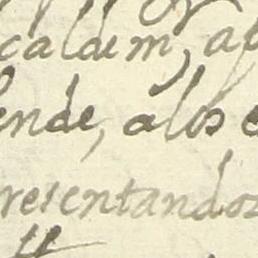 caldem, a
ende, alos e
resentandos